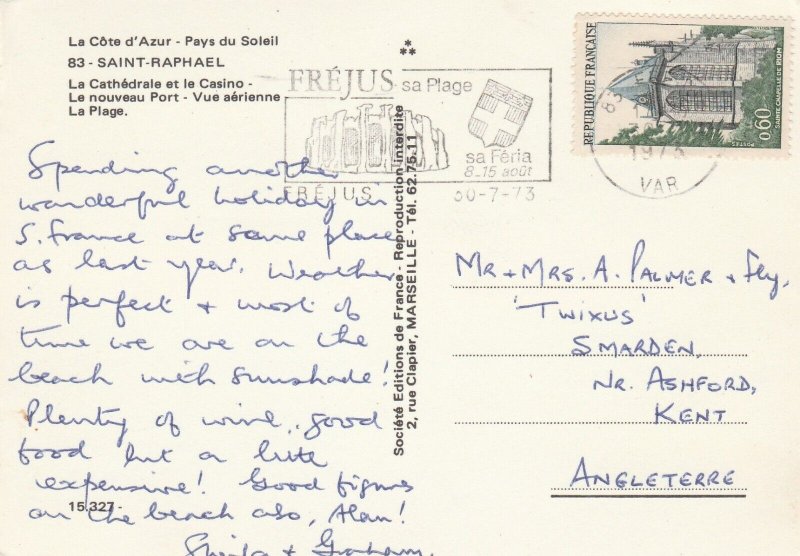 La Côte d'Azur - Pays du Soleil
83 - SAINT-RAPHAEL
La Cathédrale et le Casino -
Le nouveau Port - Vue aérienne
La Plage.
FRÉJUS sa Plage
sa Féria
8-15 août
FRÉJUS
30-7-73
83
1973
VAR
REPUBLIQUE FRANÇAISE
0,60
POSTES
SAINTE CHAPELLE DE RIOM
Spending another
wonderful holiday in
S. France at same place
as last year. Weather
is perfect + most of
time we are on the
beach with sunshade!
Plenty of wine, good
food but a little
expensive! Good figures
on the beach also, Alan!
Sheila + Graham.
15.327 -
Société Editions de France - Reproduction interdite
2, rue Clapier, MARSEILLE - Tél. 62.75.11
MR + MRS. A. PALMER + Fly,
'TWIXUS'
SMARDEN,
NR. ASHFORD,
KENT
ANGLETERRE